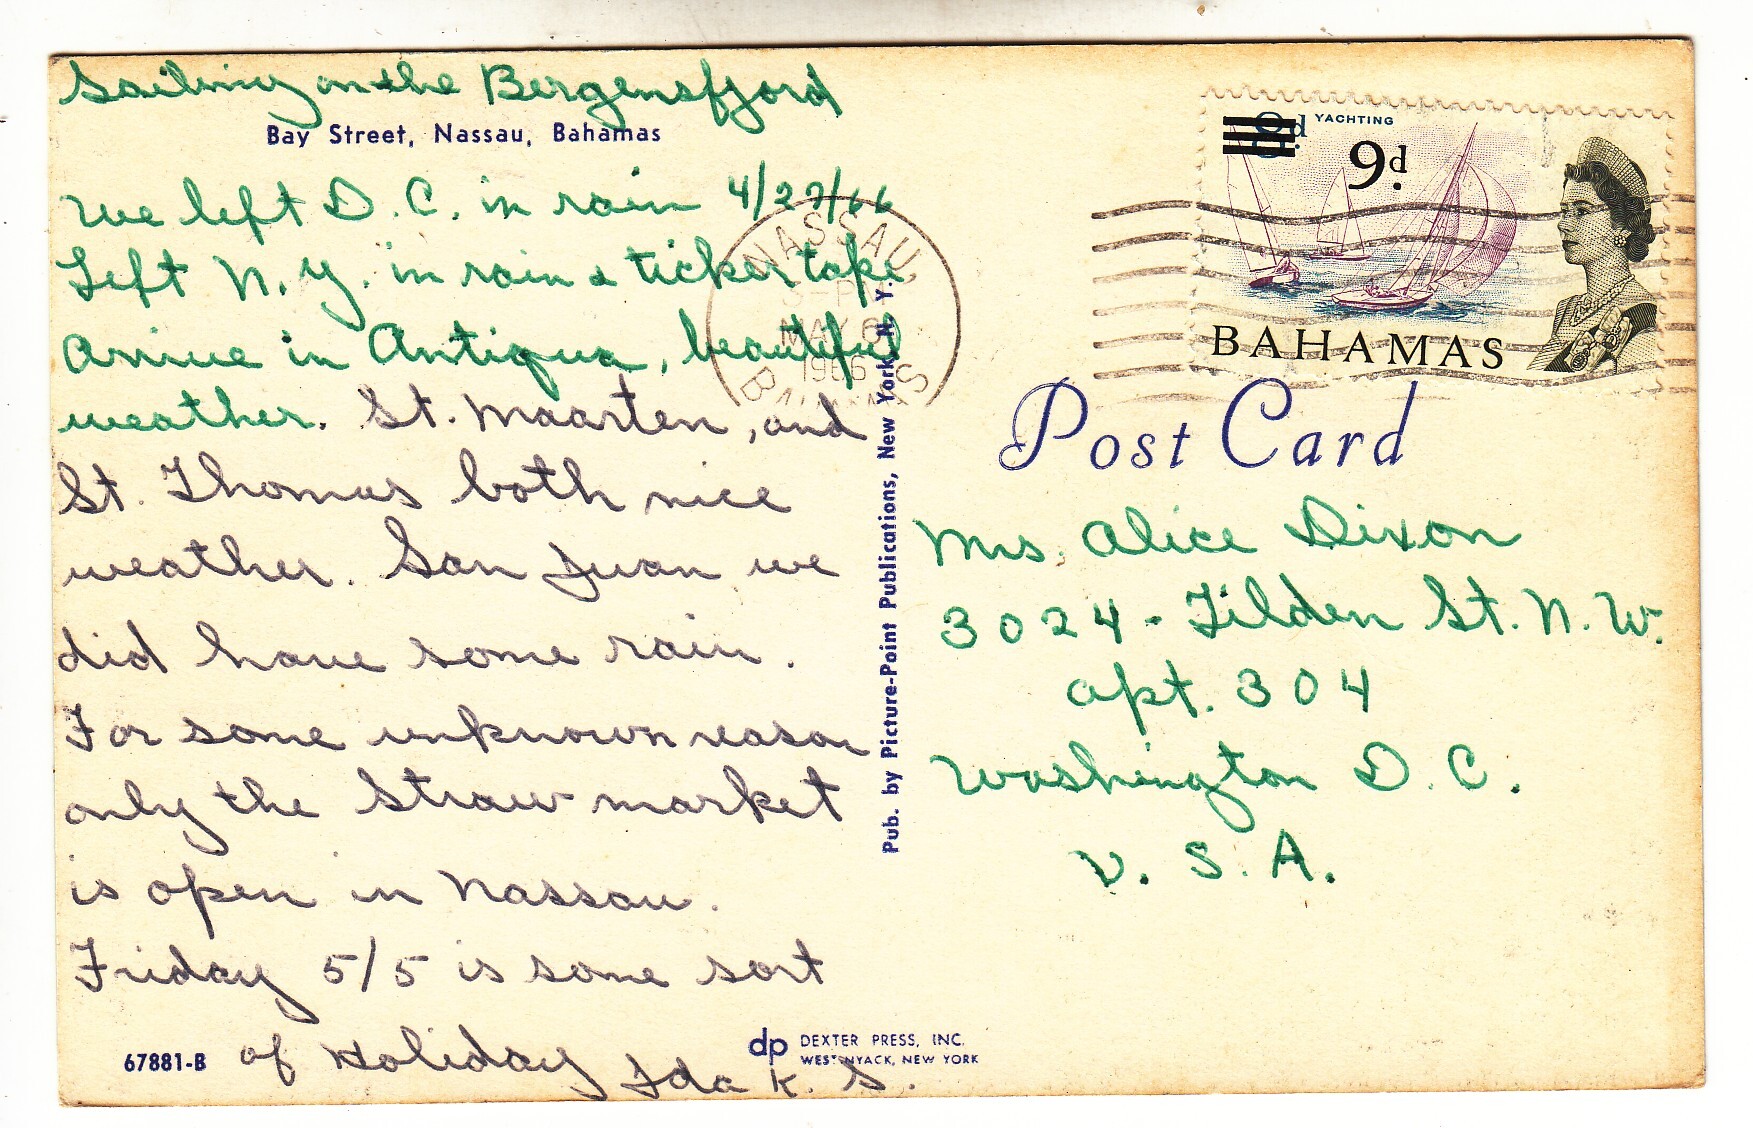 Sailing on the Bergensfjord
Bay Street, Nassau, Bahamas
We left D.C. in rain 4/27/66
Left N.Y. in rain & ticker tape
Arrive in Antigua, beautiful
weather. St. Maarten, and
St. Thomas both nice
weather. San Juan we
did have some rain.
For some unknown reason
only the Straw market
is open in Nassau.
Friday 5/5 is some sort
of Holiday Ida K. S.
67881-B
dp DEXTER PRESS, INC.
WEST NYACK, NEW YORK
Pub. by Picture-Point Publications, New York, N. Y.
NASSAU,
3-PM
MAY 6
1966
BAHAMAS
8d YACHTING
9d
BAHAMAS
Post Card
Mrs. Alice Dixon
3024 - Tilden St. N. W.
apt. 304
Washington D. C.
U. S. A.